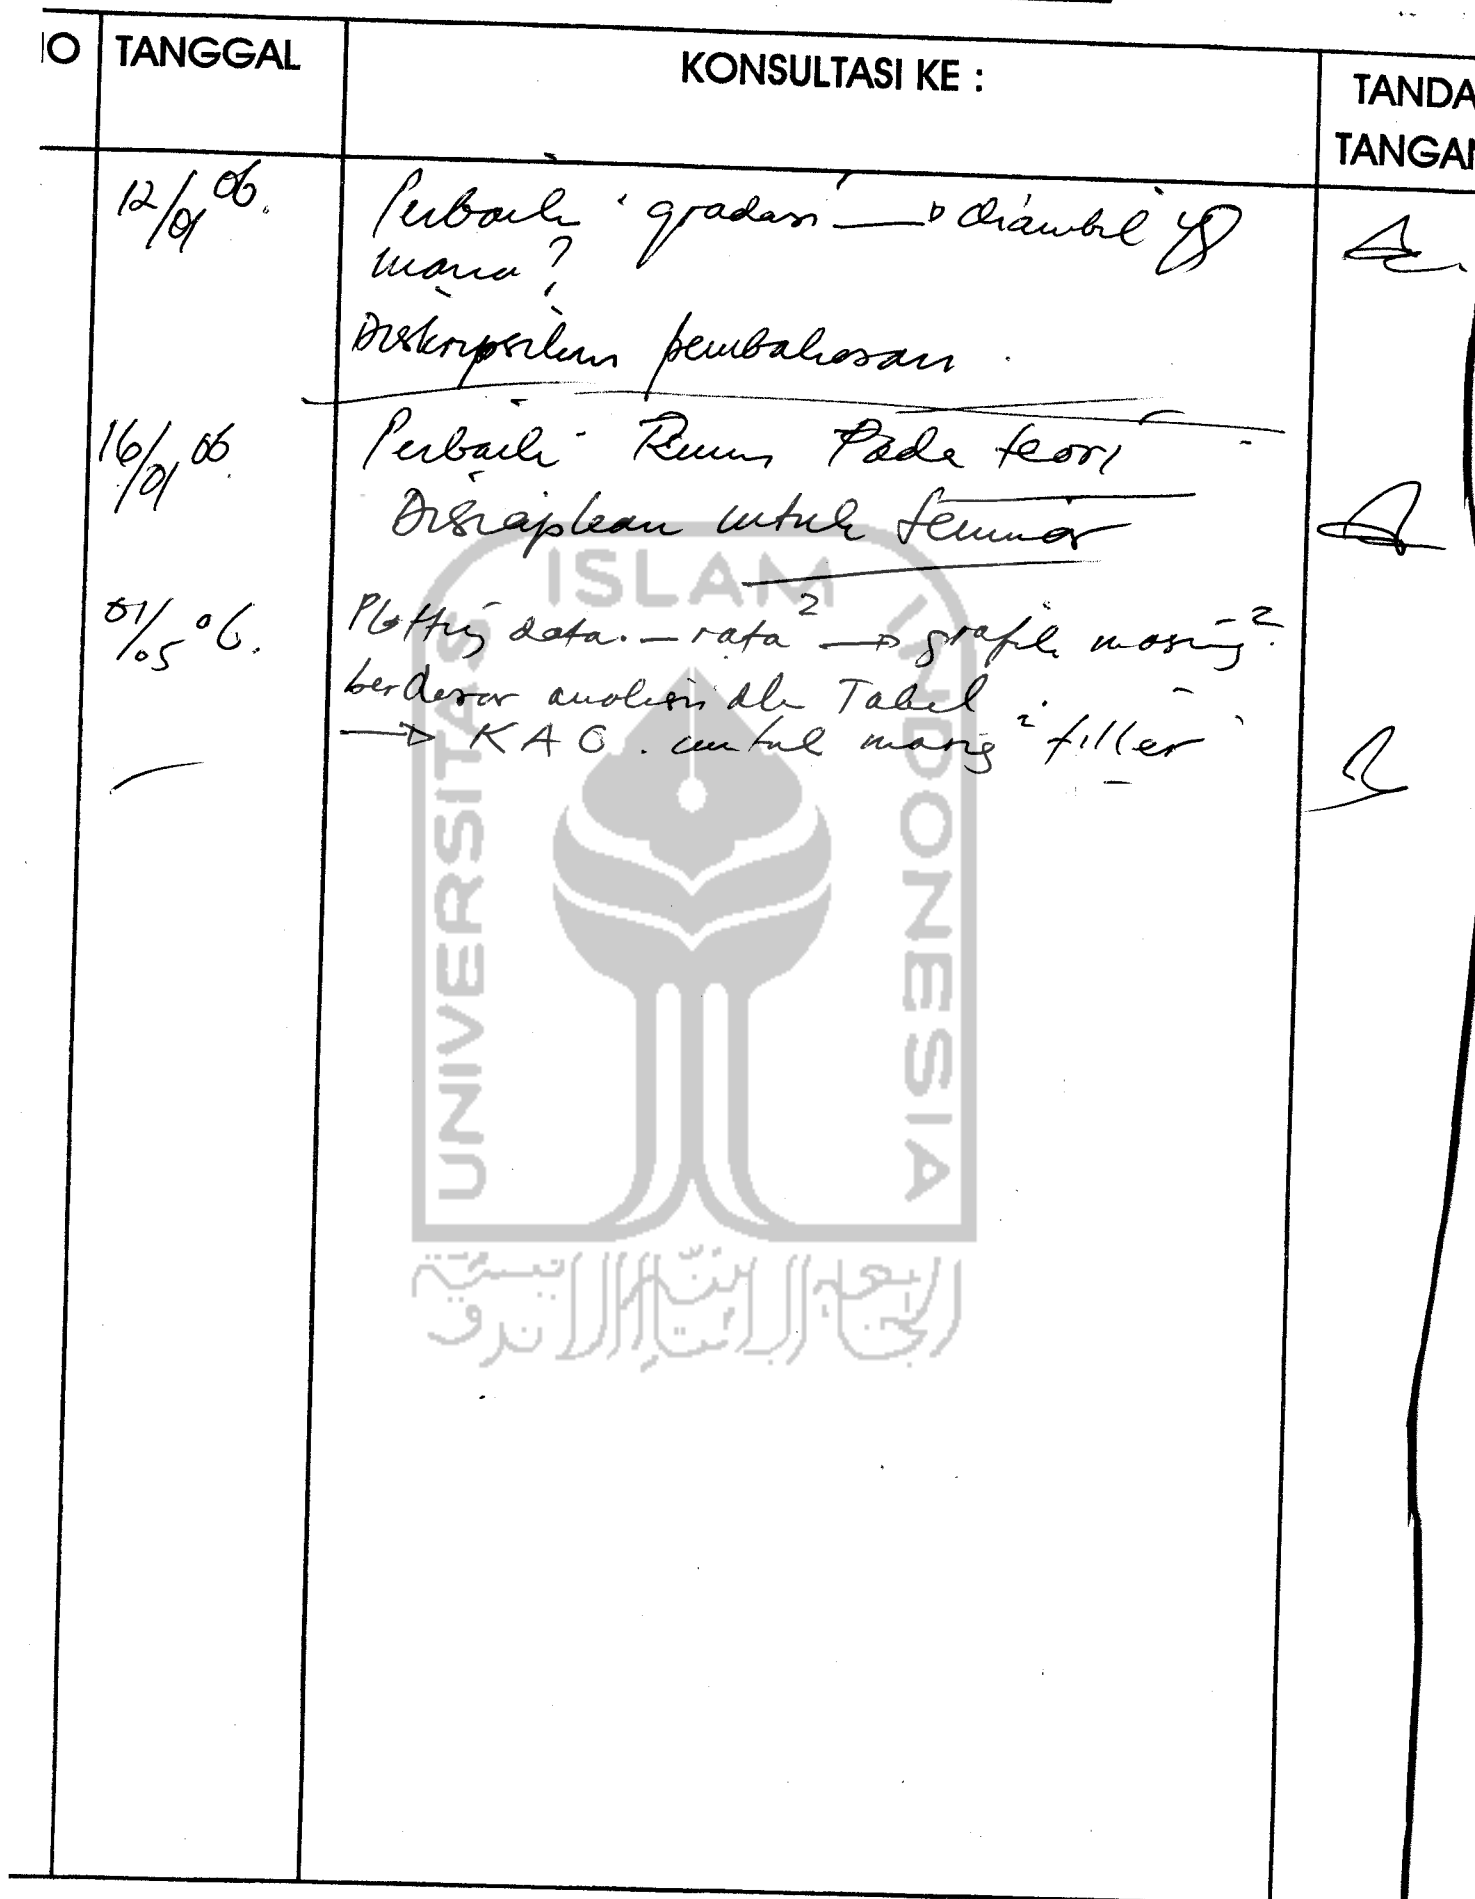 NO TANGGAL KONSULTASI KE : TANDA
TANGAN
12/01 06. Perbaiki gradasi → diambil yg
mana ?
Diskripsikan pembahasan .
16/01 06 Perbaiki Rumus Pada teori
Disiapkan untuk seminar
01/05 06. Plotting data - rata² → grafik masing²
berdasar analisis dlm Tabel .
→ KAO . untuk masing² filler
UNIVERSITAS ISLAM INDONESIA